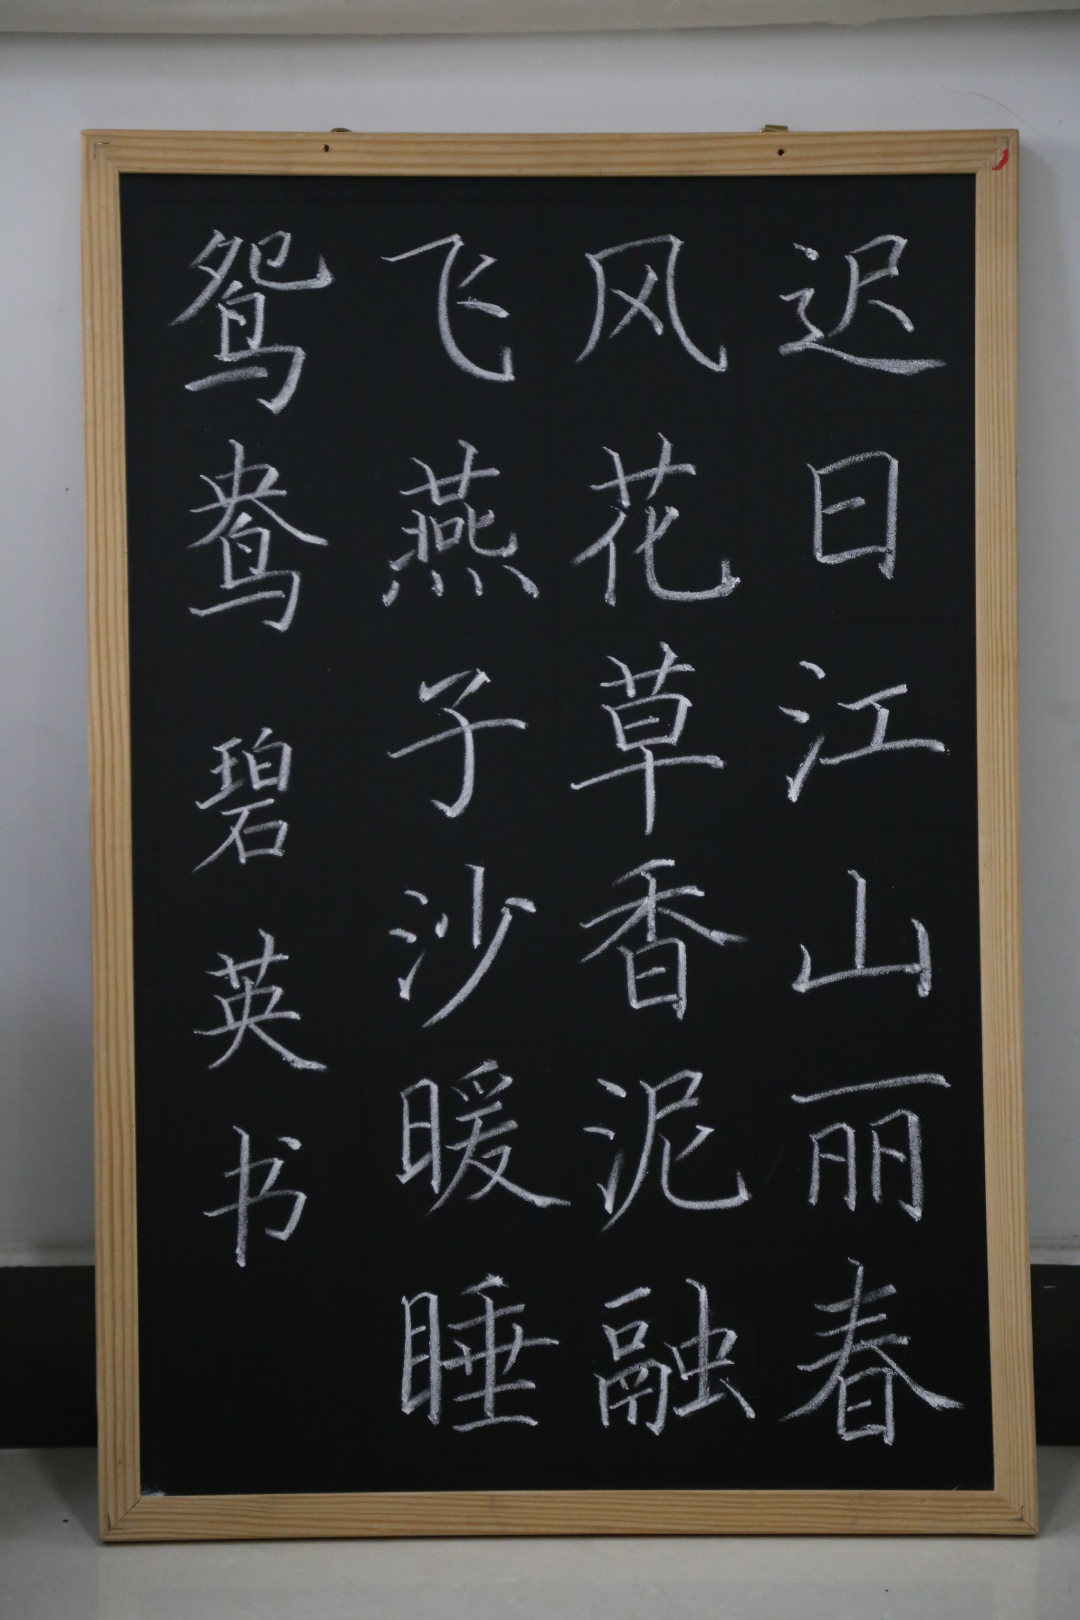 迟日江山丽春
风花草香泥融
飞燕子沙暖睡
鸳鸯 碧英书